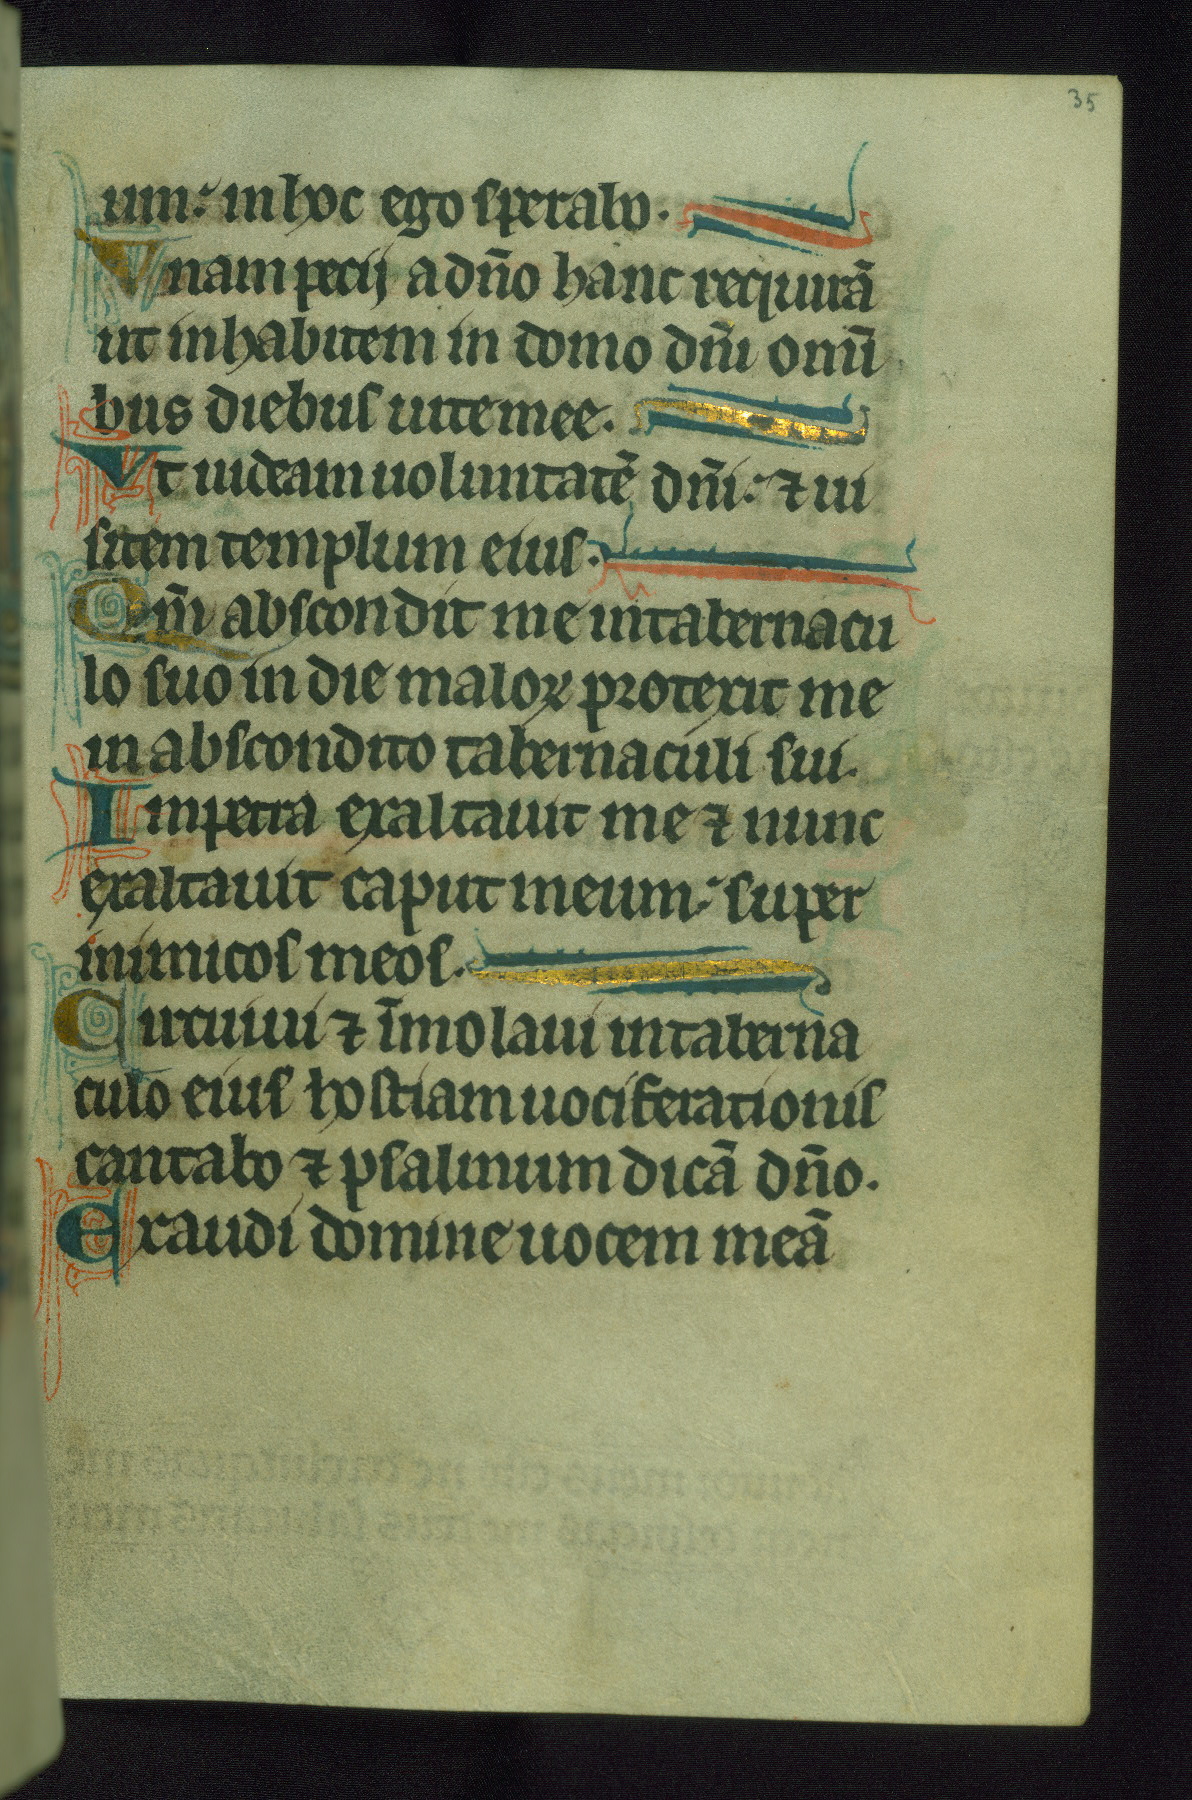 35
um: in hoc ego sperabo.
Vnam pecij a dño hanc requirā
ut inhabitem in domo dñi omī
bus diebus uite mee.
Vt uideam uoluntatē dñi: ⁊ ui
sitem templum eius.
Qm̄ abscondit me in tabernacu
lo suo in die maloꝝ protexit me
in abscondito tabernaculi sui.
In petra exaltauit me ⁊ nunc
exaltauit caput meum: super
inimicos meos.
Circuiui ⁊ īmolaui in taberna
culo eius hostiam uociferationis
cantabo ⁊ psalmum dicā dño.
Exaudi domine uocem meā